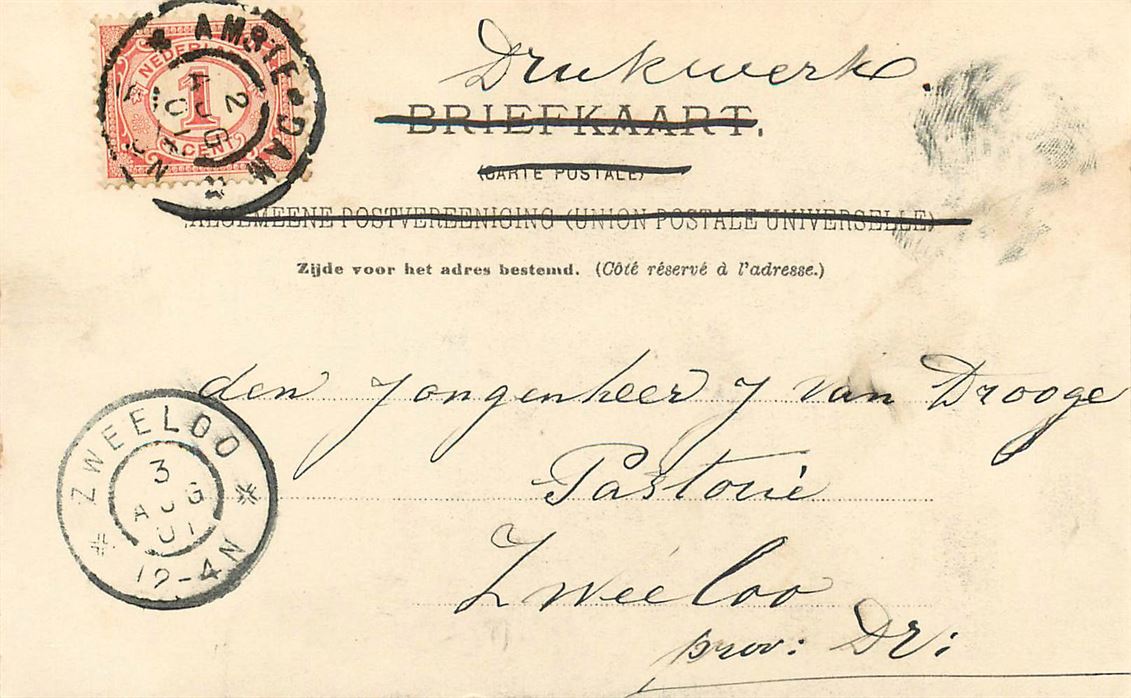 AMSTE DAM
NEDERL
1
CENT
2
AUG
01
N
Drukwerk.
BRIEFKAART.
(CARTE POSTALE)
ALGEMEENE POSTVEREENIGING (UNION POSTALE UNIVERSELLE)
Zijde voor het adres bestemd. (Côté réservé à l'adresse.)
den Jongenheer J van Drooge
Pastorie
Zweeloo
prov: Dr:
ZWEELOO
3
AUG
01
12-4N